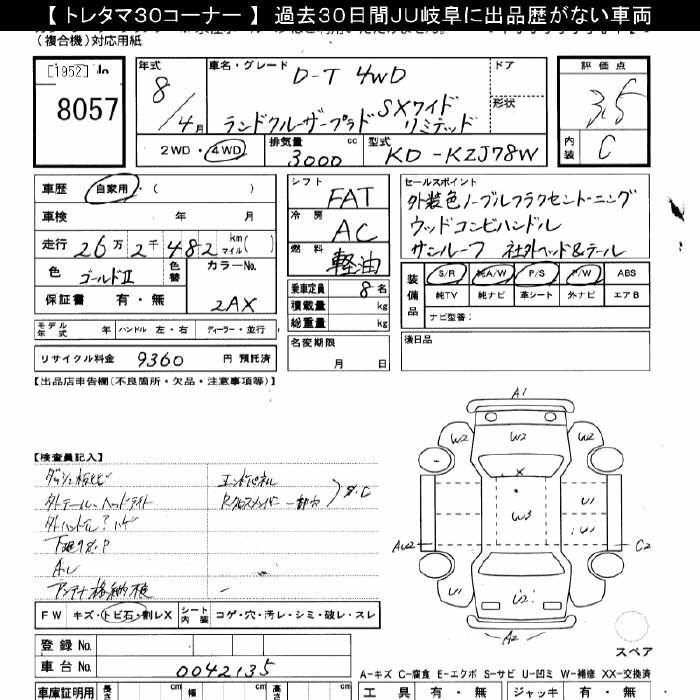 【 トレタマ30コーナー 】 過去30日間JU岐阜に出品歴がない車両
(複合機)対応用紙
[1952] No
8057
年式
8/4月
車名・グレード
D-T 4WD
ランドクルーザープラド SXワイド リミテッド
ドア
形状
評価点
3.5
内装
C
2WD・4WD
排気量
3000 cc
型式
KD-KZJ78W
車歴 自家用・( )
車検 年 月
走行 26万2千482 km マイル( )
色 ゴールドⅡ
色替
カラーNo.
2AX
保証書 有・無
モデル年式 年
ハンドル 左・右
ディーラー・並行
リサイクル料金 9360 円 預託済
シフト FAT
冷房 AC
燃料 軽油
乗車定員 8名
積載量 kg
総重量 kg
名変期限
月 日
セールスポイント
外装色ノーブルフラクセントーニング
ウッドコンビハンドル
サンルーフ 社外ヘッド&テール
装備品
S/R 純A/W P/S P/W ABS
純TV 純ナビ 革シート 外ナビ エアB
ナビ型番:
後日品
【出品店申告欄(不良箇所・欠品・注意事項等)】
【検査員記入】
外テール、ヘッドライト
エンドパネル
一部穴
FW キズ・トビ石・割レX
シート内装 コゲ・穴・汚レ・シミ・破レ・スレ
登録 No.
車台 No. 0042135
車庫証明用 cm 幅 cm 高さ cm
A1
W2 W2 W2
X
W3
U1
U1
AU2 C2
U1 U2
A2
スペア
A-キズ C-腐食 E-エクボ S-サビ U-凹ミ W-補修 XX-交換済
工具 有・無 ジャッキ 有・無